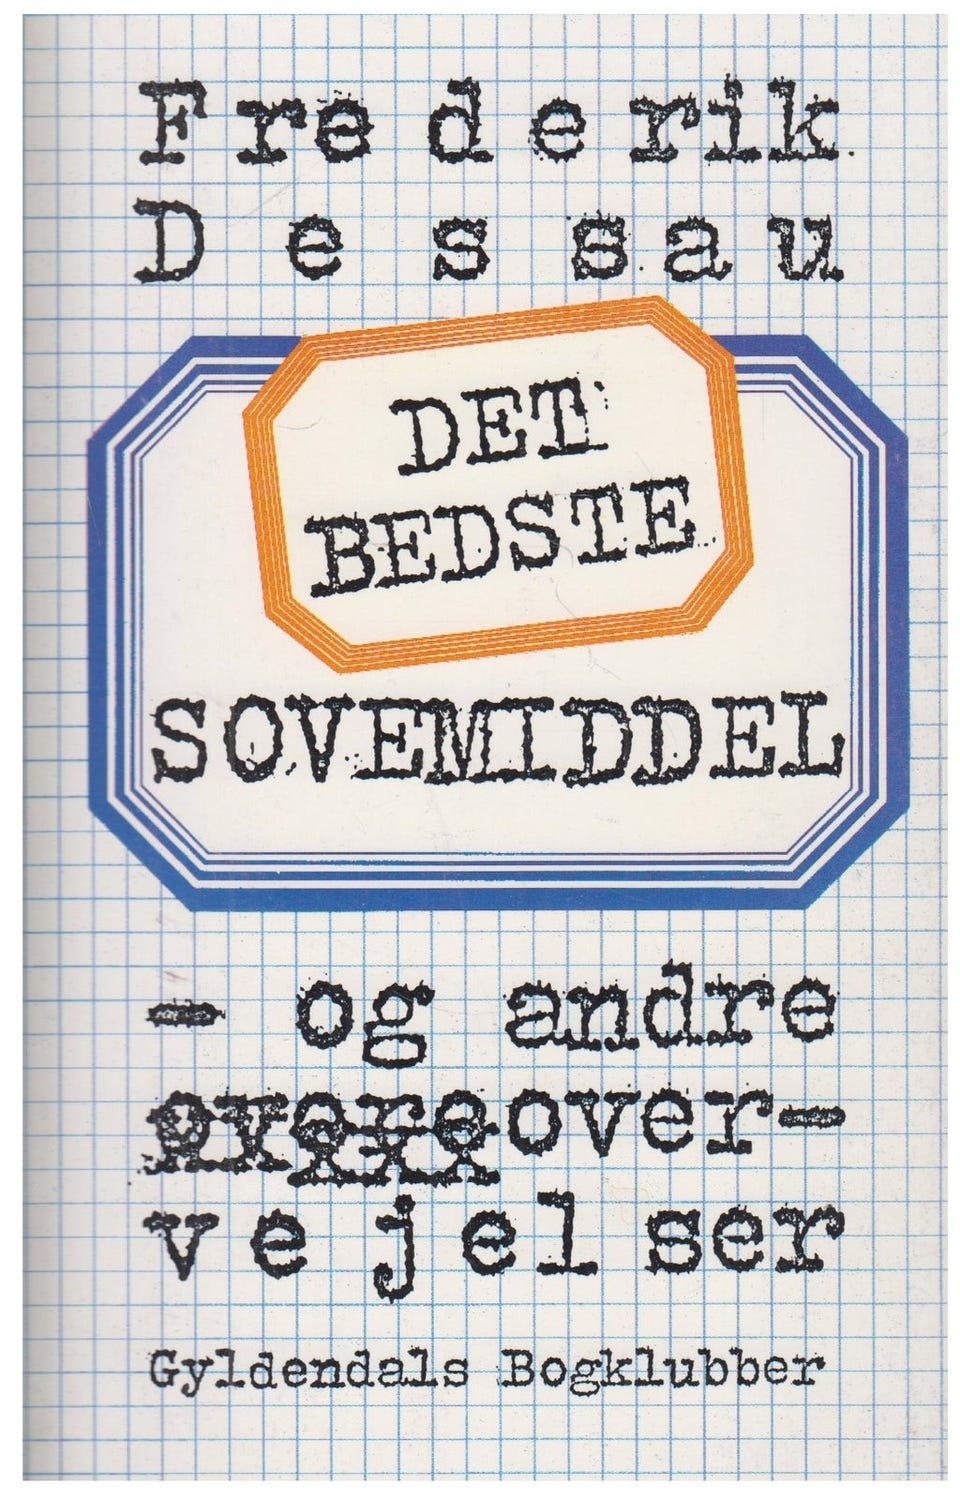 Frederik
Dessau
DET
BEDSTE
SOVEMIDDEL
- og andre
over-
vejelser
Gyldendals Bogklubber